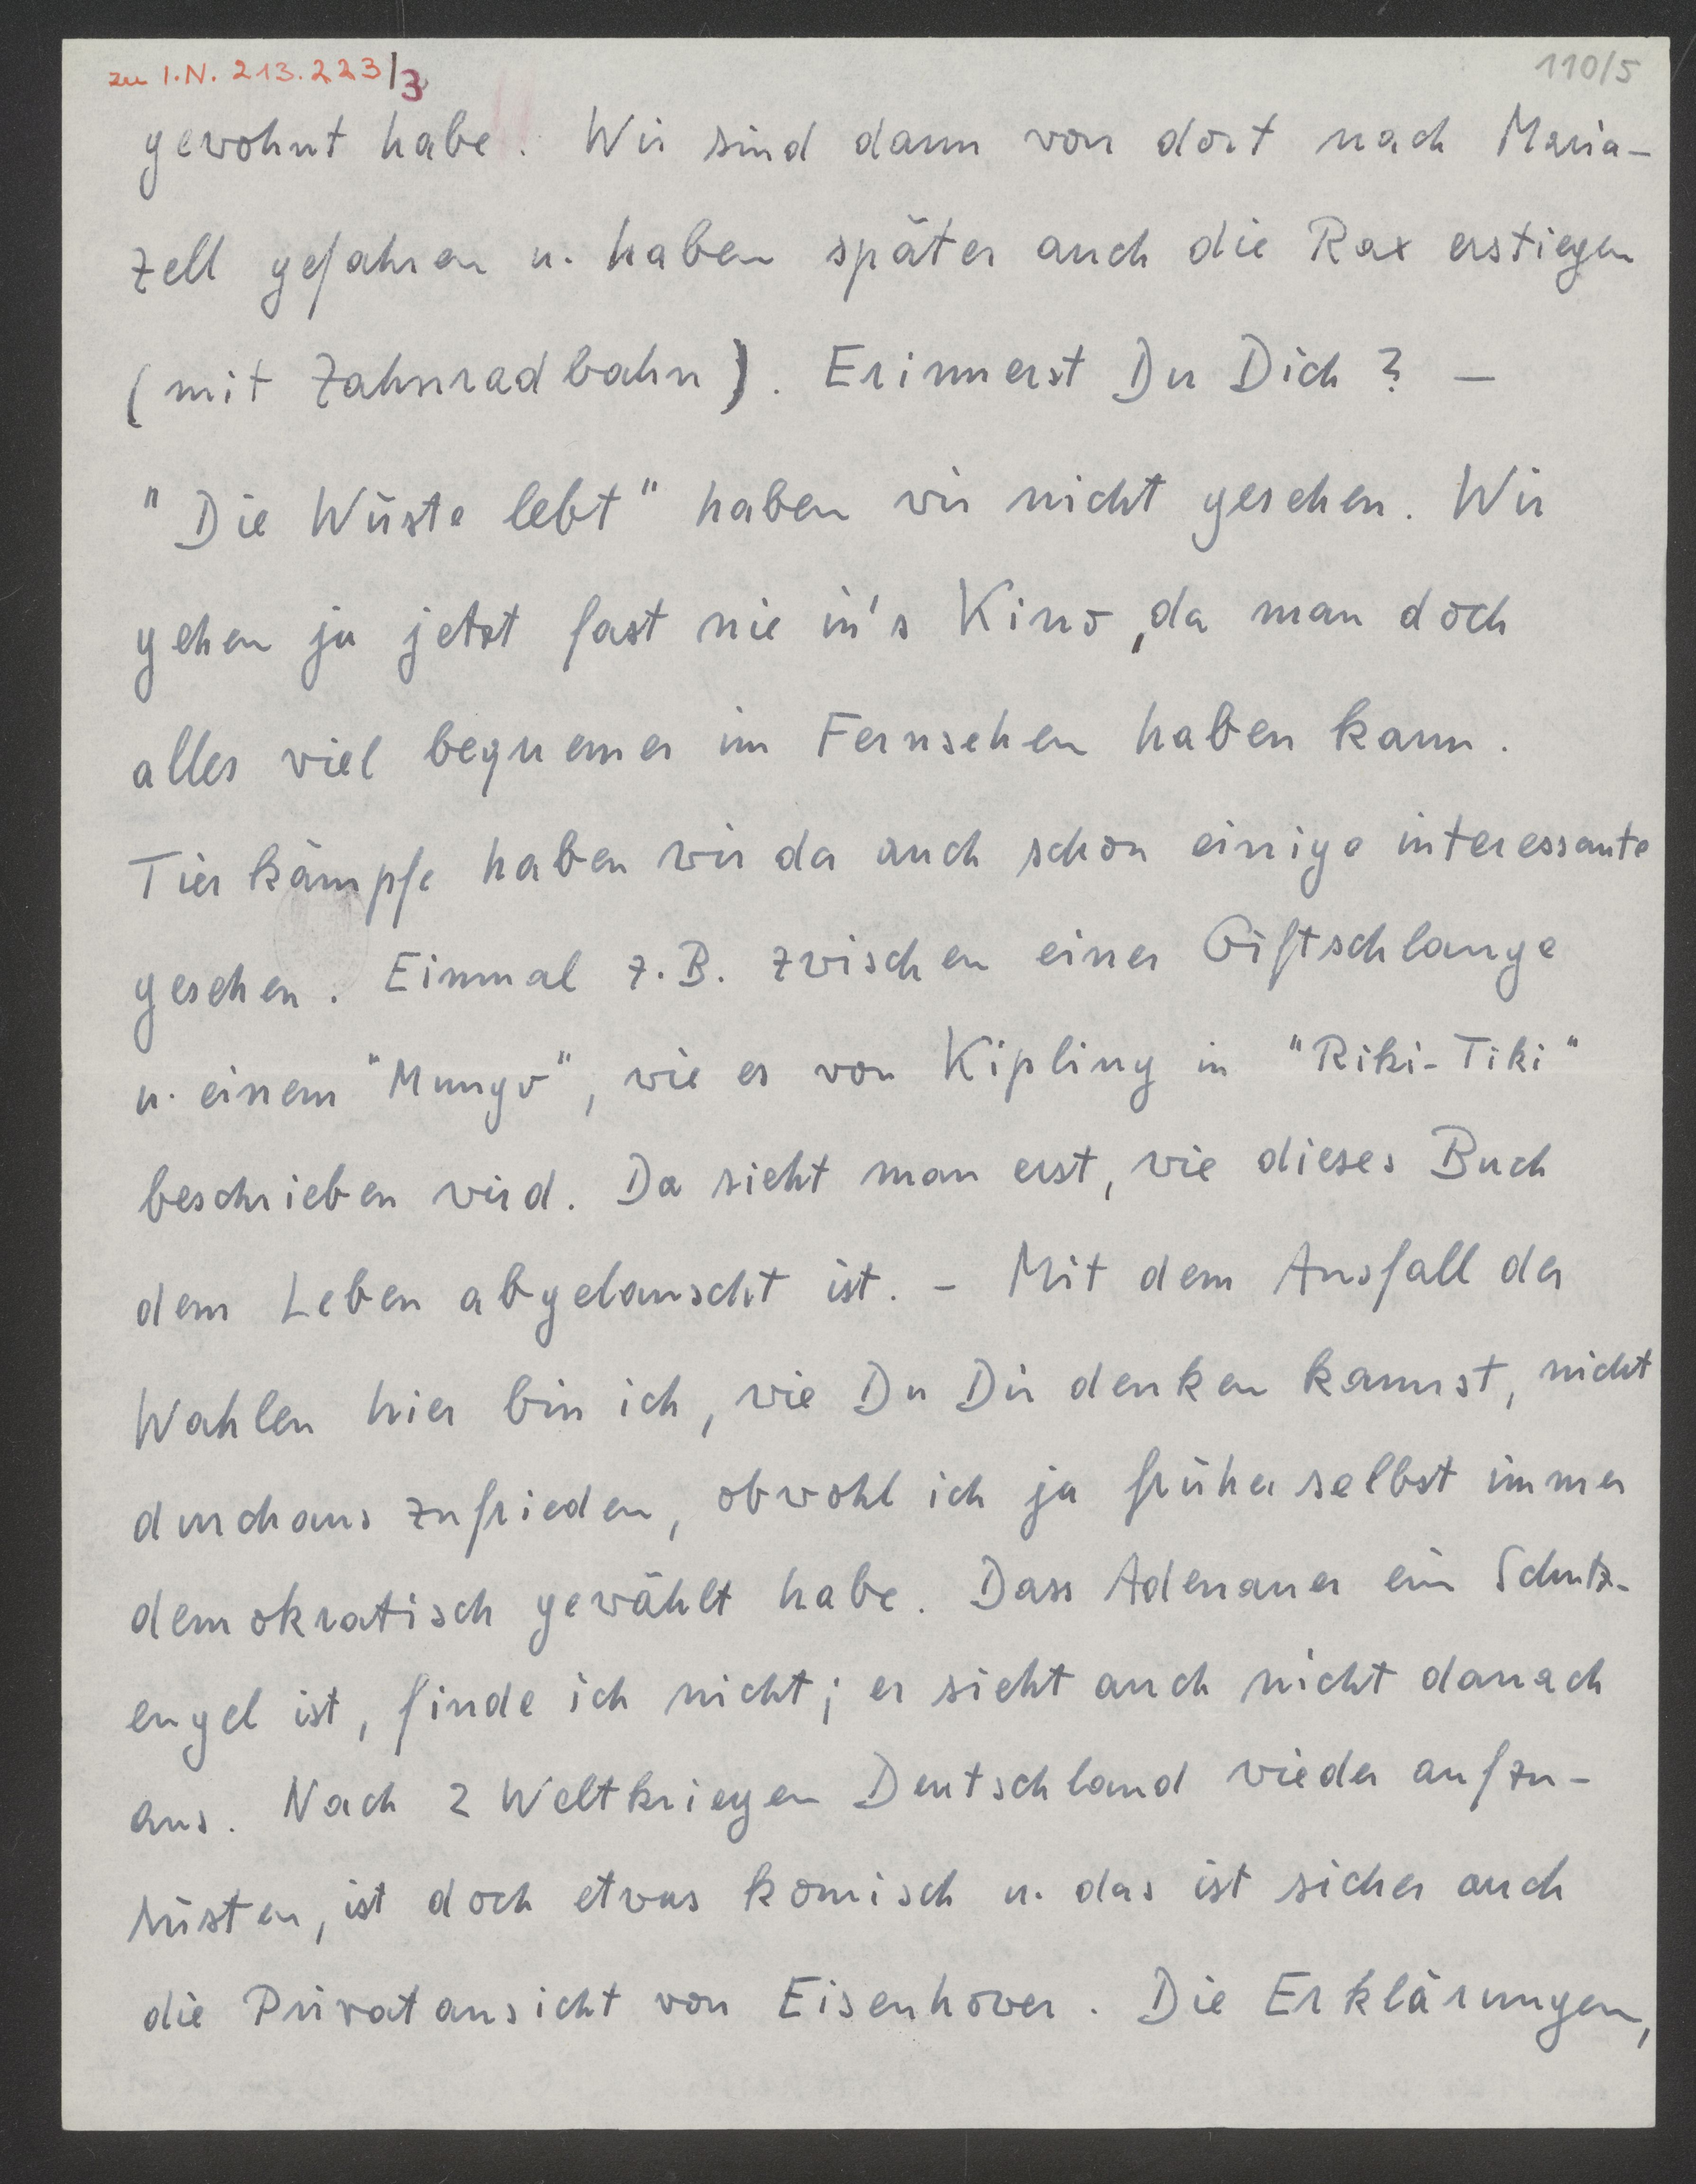 zu I.N. 213.223/3
110/5
gewohnt habe. Wir sind dann von dort nach Maria-
zell gefahren u. haben später auch die Rax erstiegen
(mit Zahnradbahn). Erinnerst Du Dich? —
"Die Wüste lebt" haben wir nicht gesehen. Wir
gehen ja jetzt fast nie in's Kino, da man doch
alles viel bequemer im Fernsehen haben kann.
Tierkämpfe haben wir da auch schon einige interessante
gesehen. Einmal z.B. zwischen einer Giftschlange
u. einem "Mungo", wie es von Kipling in "Riki-Tiki"
beschrieben wird. Da sieht man erst, wie dieses Buch
dem Leben abgelauscht ist. - Mit dem Ausfall der
Wahlen hier bin ich, wie Du Dir denken kannst, nicht
durchaus zufrieden, obwohl ich ja früher selbst immer
demokratisch gewählt habe. Dass Adenauer ein Schutz-
engel ist, finde ich nicht; er sieht auch nicht danach
aus. Nach 2 Weltkriegen Deutschland wieder aufzu-
rüsten, ist doch etwas komisch u. das ist sicher auch
die Privatansicht von Eisenhower. Die Erklärungen,